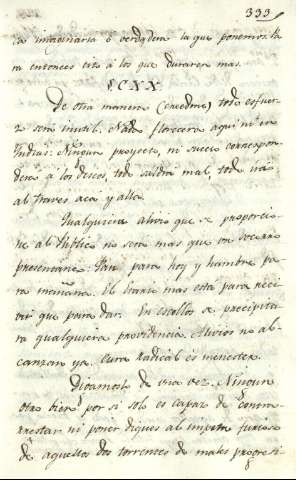 333
ca imaginaria ó verdadera la que ponemos. Pa
ra entonces esto á los que duraren mas.
§CXX
De otra manera (creedme) todo esfuer
zo será inutil. Nada florecerá aquí ni en
Indias: Ningun proyecto, ni suceso correspon
derá á los deseos, todo saldrá mal, todo irá
al traves acá y allá.
Qualquiera alivio que se proporcio
ne al Publico no será mas que un socorro
Pan para hoy y hambre pa
ra mañana. El Erario mas está para reci
vir que para dar. En escollos se precipita
ra qualquiera providencia. Alivios no al
canzan ya. Cura radical es menester.
Digamoslo de una vez. Ningun
otro bien por si solo es capaz de contra
rrestar ni poner diques al impetu furioso
de aquellos dos torrentes de males